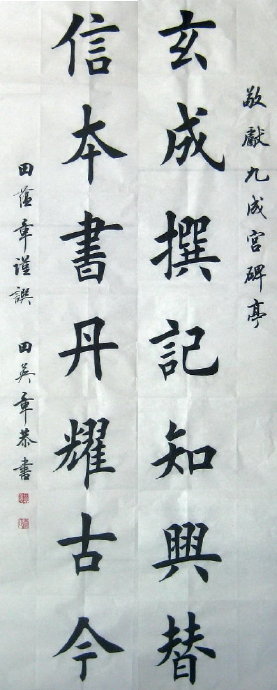 敬獻九成宮碑亭
玄成撰記知興替
信本書丹耀古今
田蘊章謹譔 田英章恭書